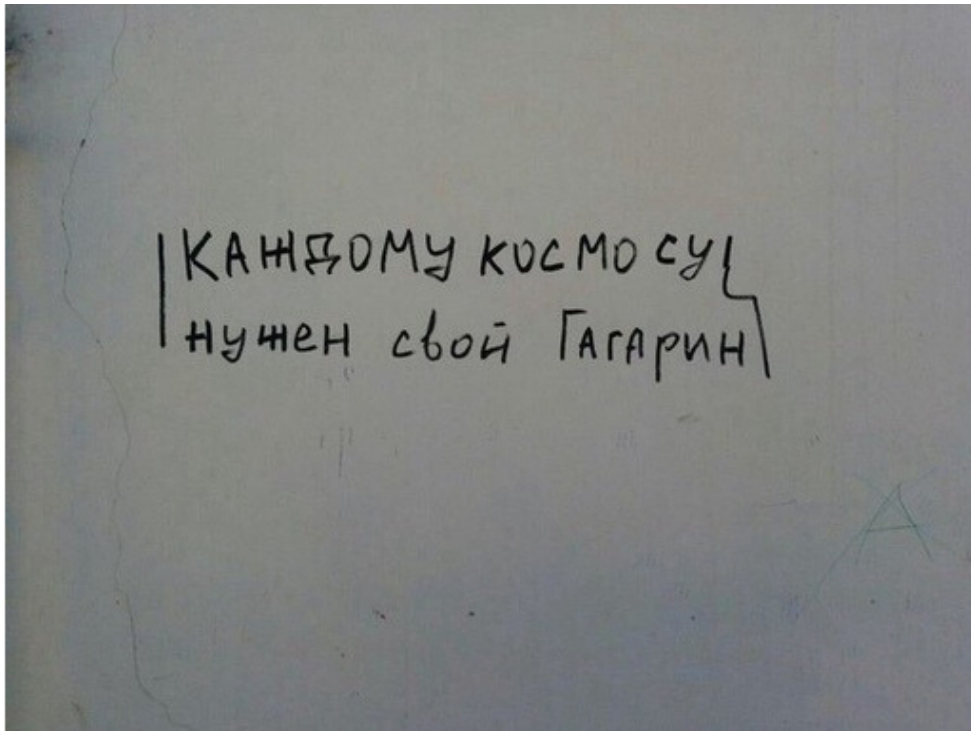 КАЖДОМУ КОСМОСУ
нужен свой Гагарин
А